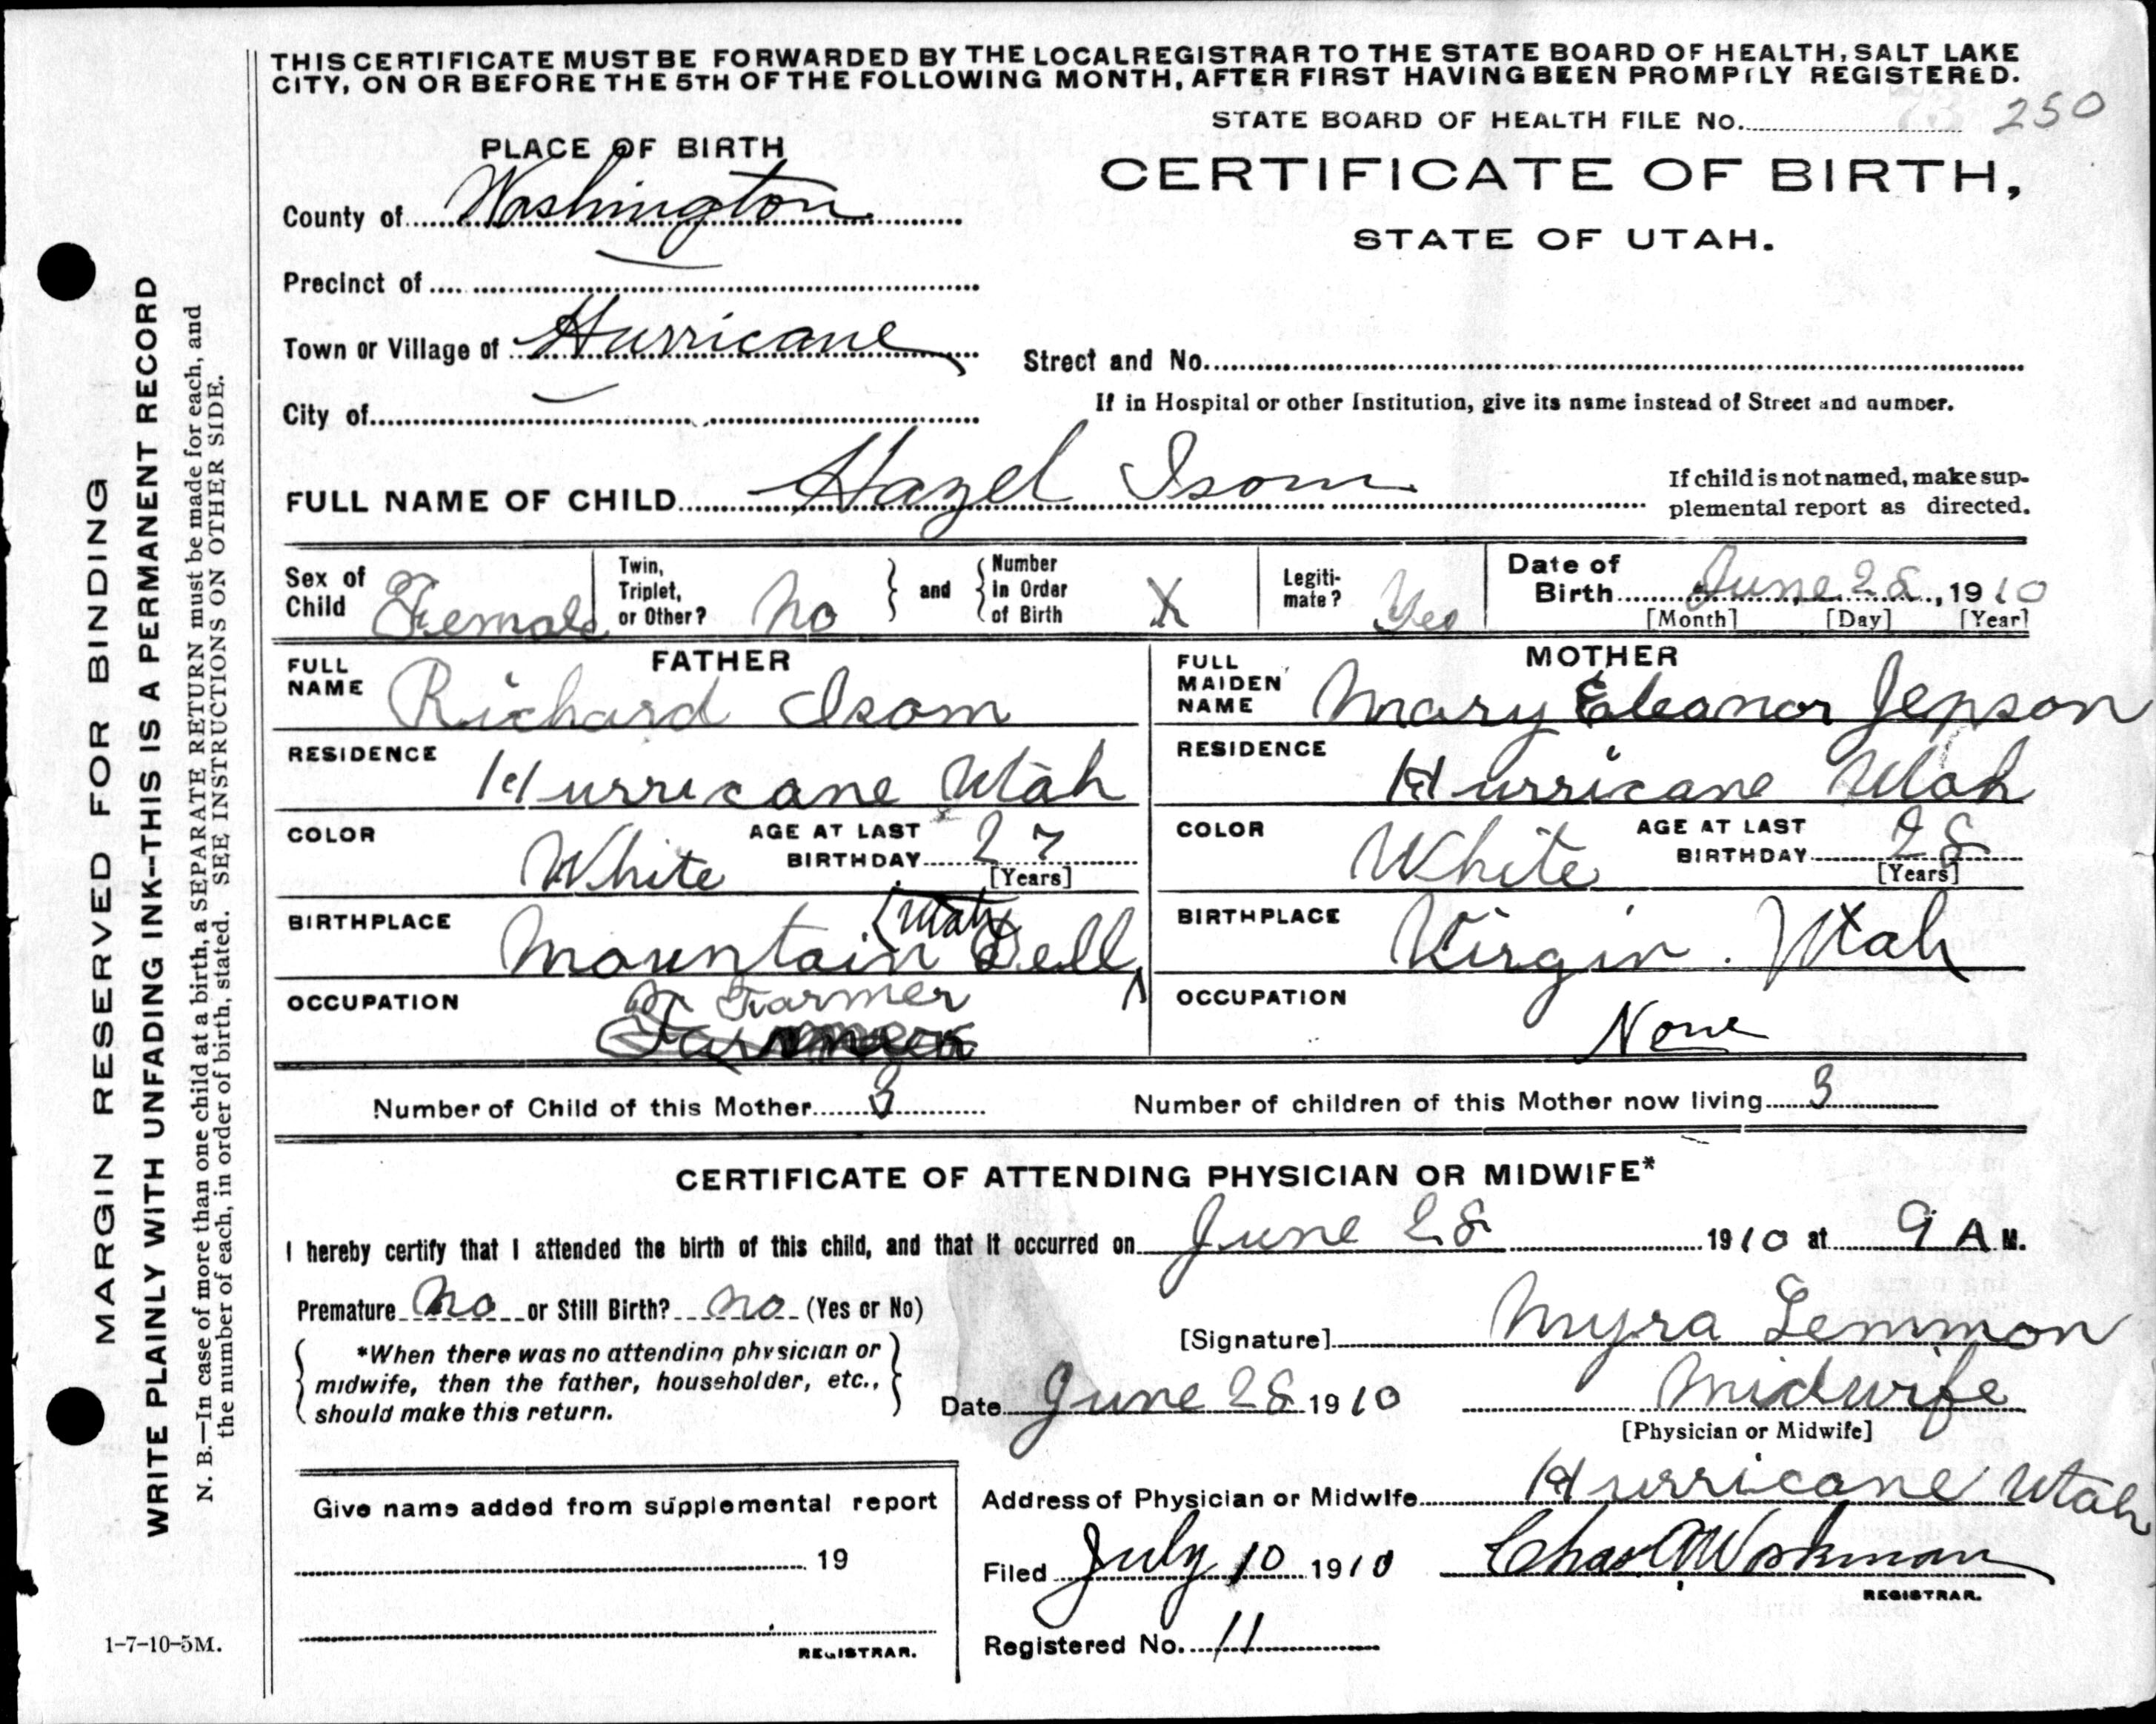 THIS CERTIFICATE MUST BE FORWARDED BY THE LOCAL REGISTRAR TO THE STATE BOARD OF HEALTH, SALT LAKE
CITY, ON OR BEFORE THE 5TH OF THE FOLLOWING MONTH, AFTER FIRST HAVING BEEN PROMPTLY REGISTERED.
STATE BOARD OF HEALTH FILE No. 250
PLACE OF BIRTH
CERTIFICATE OF BIRTH,
STATE OF UTAH.
County of Washington
Precinct of
Town or Village of Hurricane
Street and No.
City of
If in Hospital or other Institution, give its name instead of Street and number.
FULL NAME OF CHILD Hazel Isom
If child is not named, make sup-
plemental report as directed.
Sex of Child Female
Twin, Triplet, or Other? No
and Number in Order of Birth X
Legiti-mate? Yes
Date of Birth June 28, 1910
[Month] [Day] [Year]
FATHER
FULL NAME Richard Isom
RESIDENCE Hurricane Utah
COLOR White AGE AT LAST BIRTHDAY 27
[Years]
BIRTHPLACE Mountain Dell (Utah
OCCUPATION Farmer
MOTHER
FULL MAIDEN NAME Mary Eleanor Jepson
RESIDENCE Hurricane Utah
COLOR White AGE AT LAST BIRTHDAY 28
[Years]
BIRTHPLACE Virgin. Utah
OCCUPATION None
Number of Child of this Mother 3 Number of children of this Mother now living 3
CERTIFICATE OF ATTENDING PHYSICIAN OR MIDWIFE*
I hereby certify that I attended the birth of this child, and that it occurred on June 28 1910 at 9 A M.
Premature No or Still Birth? No (Yes or No)
[Signature] Myra Lemmon
*When there was no attending physician or
midwife, then the father, householder, etc.,
should make this return.
Date June 28 1910 Midwife
[Physician or Midwife]
Give name added from supplemental report
19
REGISTRAR.
Address of Physician or Midwife Hurricane Utah
Filed July 10 1910 Chas A Workman
REGISTRAR.
Registered No. 11
1-7-10-5M.
MARGIN RESERVED FOR BINDING
WRITE PLAINLY WITH UNFADING INK--THIS IS A PERMANENT RECORD
N. B.—In case of more than one child at a birth, a SEPARATE RETURN must be made for each, and
the number of each, in order of birth, stated. SEE INSTRUCTIONS ON OTHER SIDE.